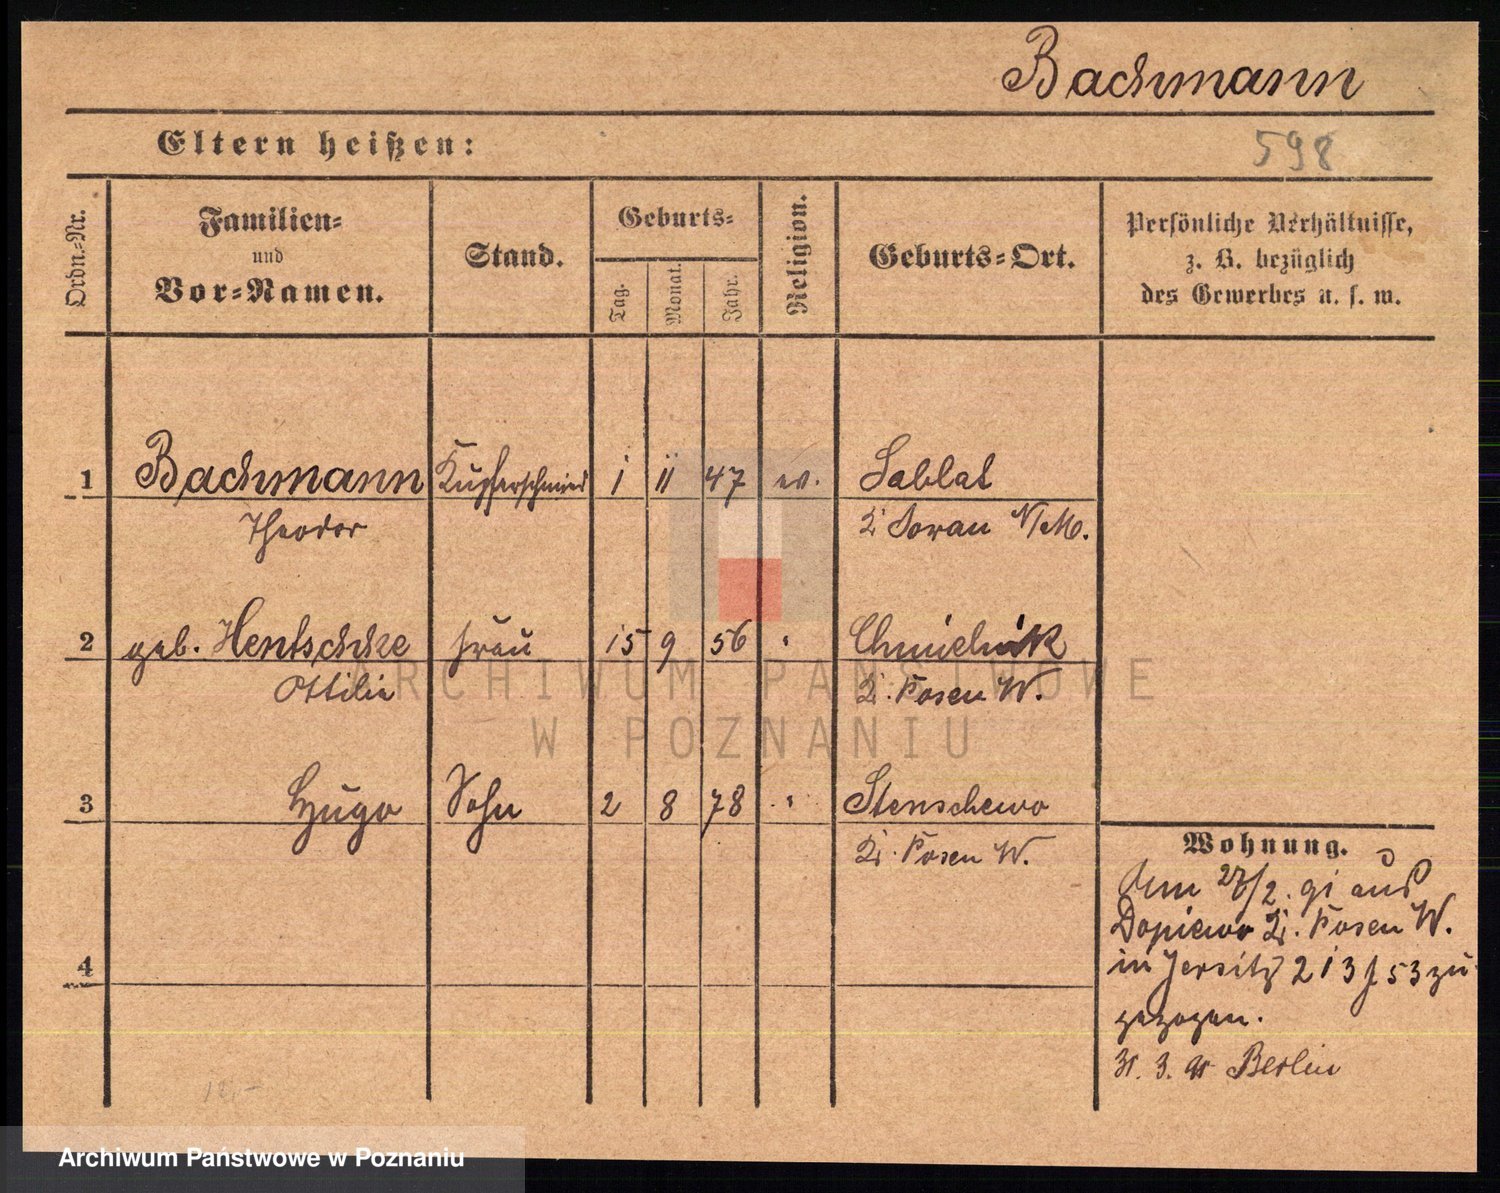 Bachmann
Eltern heißen:
598
Ordn.=Nr.
Familien=
und
Vor=Namen.
Stand.
Geburts=
Tag.
Monat.
Jahr.
Religion.
Geburts=Ort.
Persönliche Verhältnisse,
z. B. bezüglich
des Gewerbes u. s. w.
1 Bachmann Kupferschmied 1 11 47 ev. Sablat
Theodor K. Sorau N/M.
2 geb. Hentschke Frau 15 9 56 " Chmielnik
Ottilie K. Posen W.
3 Hugo Sohn 2 8 78 " Stenschewo
K. Posen W.
4
Wohnung.
Am 27/2. 91 aus
Dopiewo K. Posen W.
in Jersitz 213 f 53 zu
gezogen.
31. 3. 91 Berlin
ARCHIWUM PAŃSTWOWE
W POZNANIU
Archiwum Państwowe w Poznaniu